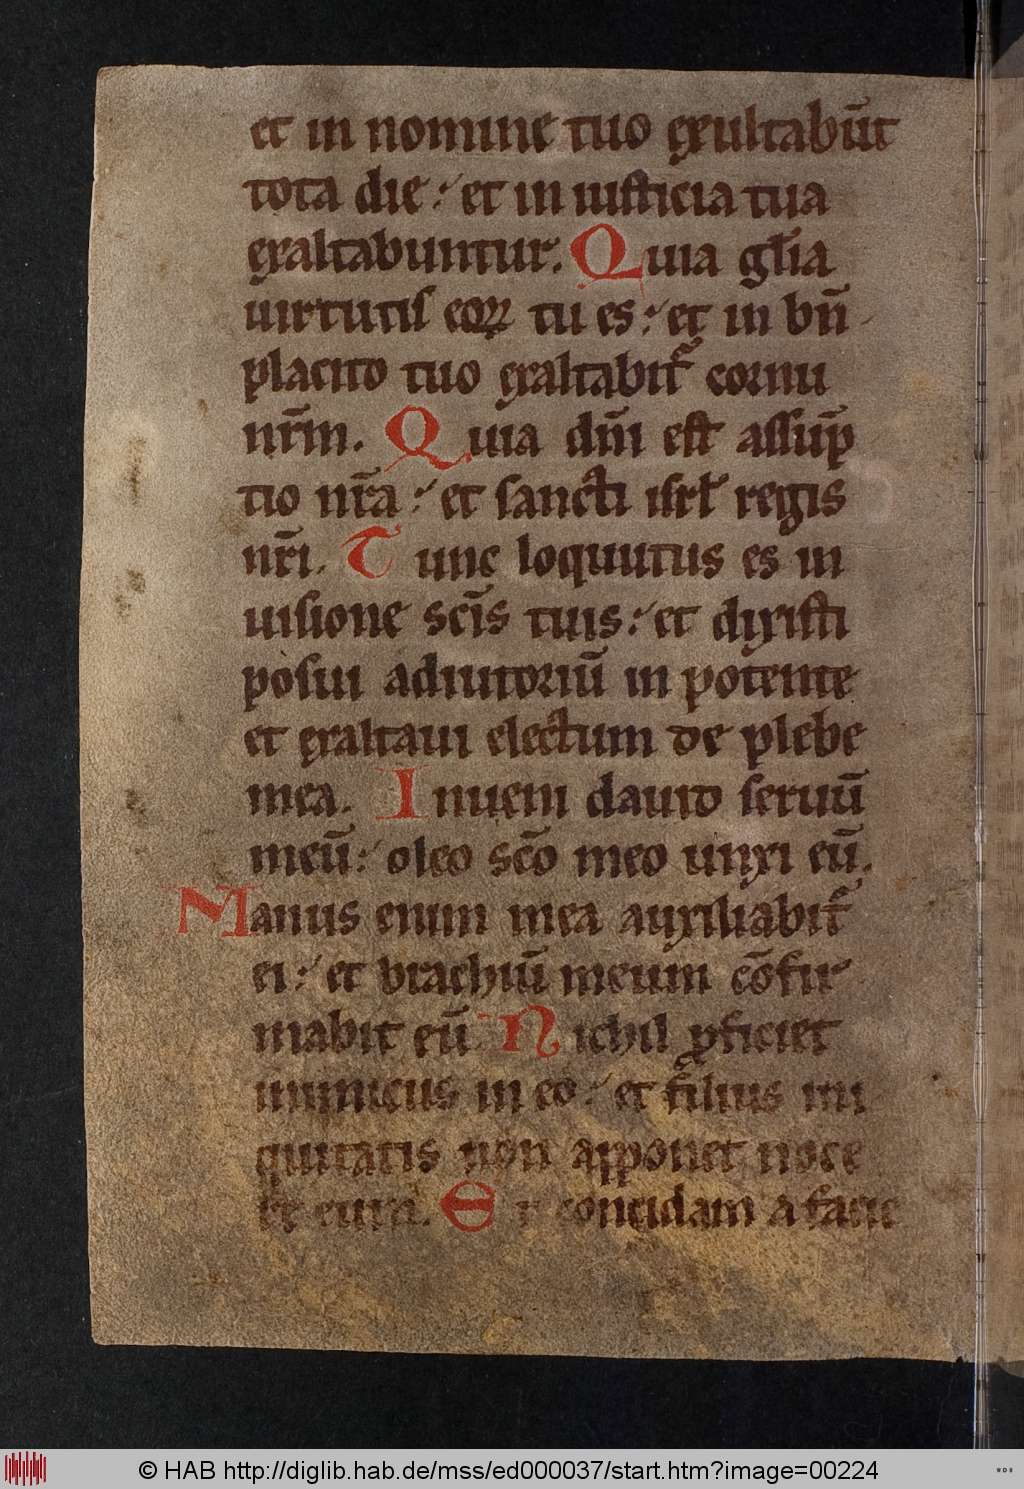 et in nomine tuo exultabūt
tota die : et in iusticia tua
exaltabuntur. Quia gl̄ia
uirtutis eoꝝ tu es : et in bn̄
placito tuo exaltabit᷑ cornu
nr̄m. Quia dn̄i est assūp
tio nr̄a : et sancti isrl̄ regis
nr̄i. Tunc loquutus es in
uisione sc̄is tuis : et dixisti
posui adiutoriū in potente
et exaltaui electum de plebe
mea. Inueni dauid seruū
meū : oleo sc̄o meo unxi eū.
Manus enim mea auxiliabit᷑
ei : et brachiū meum cōfir
mabit eū Nichil ꝓficiet
inimicus in eo : et filius ini
quitatis non apponet noce
re eum. Et concidam a facie
© HAB http://diglib.hab.de/mss/ed000037/start.htm?image=00224